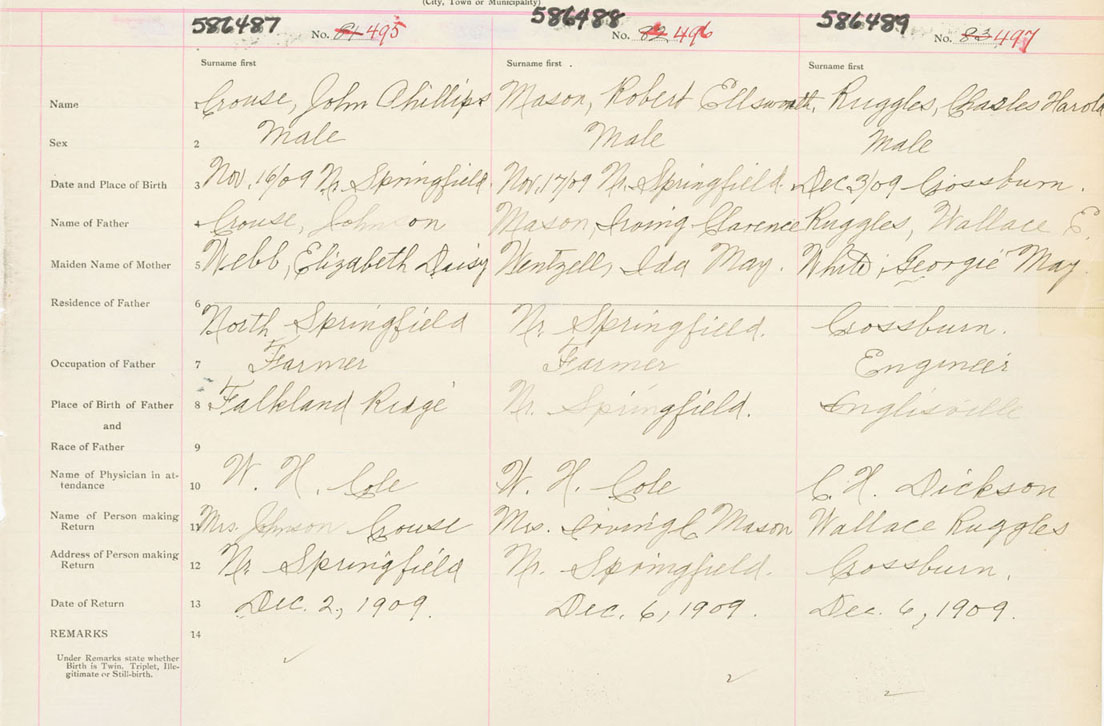 (City, Town or Municipality)
586487 586488 586489
No. 81 495 No. 82 496 No. 83 497
Surname first Surname first . Surname first
Name 1 Crouse, John Phillips Mason, Robert Ellsworth, Ruggles, Charles Harold
Sex 2 Male Male Male
Date and Place of Birth 3 Nov, 16/09 Nr. Springfield. Nov, 17/09 Nr. Springfield. Dec 3/09 Crossburn.
Name of Father 4 Crouse, Johnson Mason, Irving Clarence Ruggles, Wallace E.
Maiden Name of Mother 5 Webb, Elizabeth Daisy Wentzell, Ida May. White, Georgie May.
Residence of Father 6 North Springfield Nr. Springfield. Crossburn.
Occupation of Father 7 Farmer Farmer Engineer
Place of Birth of Father 8 Falkland Ridge Nr. Springfield. Inglisville
and
Race of Father 9
Name of Physician in at-
tendance 10 W. H. Cole W. H. Cole C. H. Dickson
Name of Person making
Return 11 Mrs. Johnson Crouse Mrs. Irving C Mason Wallace Ruggles
Address of Person making
Return 12 Nr. Springfield Nr. Springfield. Crossburn.
Date of Return 13 Dec. 2, 1909. Dec. 6, 1909. Dec. 6, 1909.
REMARKS 14
Under Remarks state whether
Birth is Twin, Triplet, Ille-
gitimate or Still-birth.